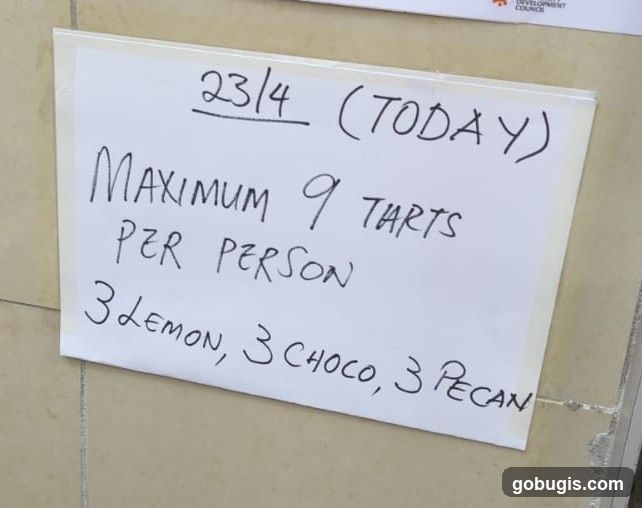 DEVELOPMENT
COUNCIL
23/4 (TODAY)
MAXIMUM 9 TARTS
PER PERSON
3 LEMON, 3 CHOCO, 3 PECAN
gobugis.com